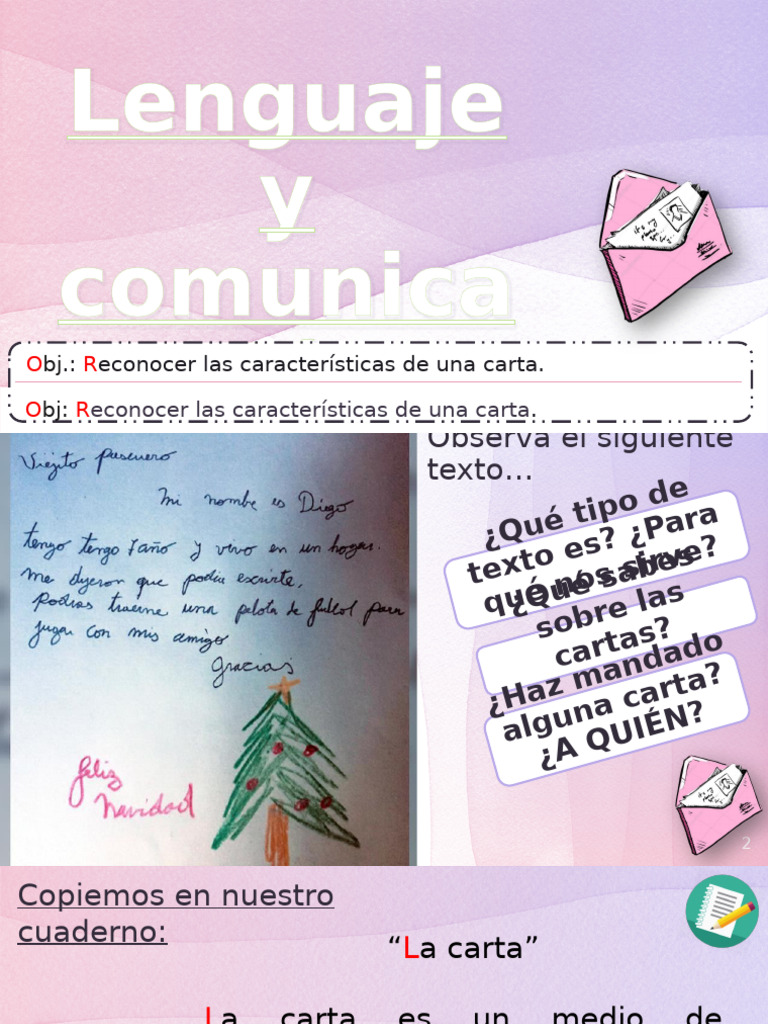 Lenguaje
y
comunica
Obj.: Reconocer las características de una carta.
Obj: Reconocer las características de una carta.
Viejito pascuero
mi nombre es Diego
tengo tengo 7 año y vivo en un hogar.
me dijeron que podia escrirte,
podrias traerme una pelota de futbol para
jugar con mis amigo
Gracias
feliz
navidad
Observa el siguiente
texto...
¿Qué tipo de
texto es? ¿Para
qué nos sirve?
¿Qué sabes
sobre las
cartas?
¿Haz mandado
alguna carta?
¿A QUIÉN?
2
Copiemos en nuestro
cuaderno:
“La carta”
La carta es un medio de